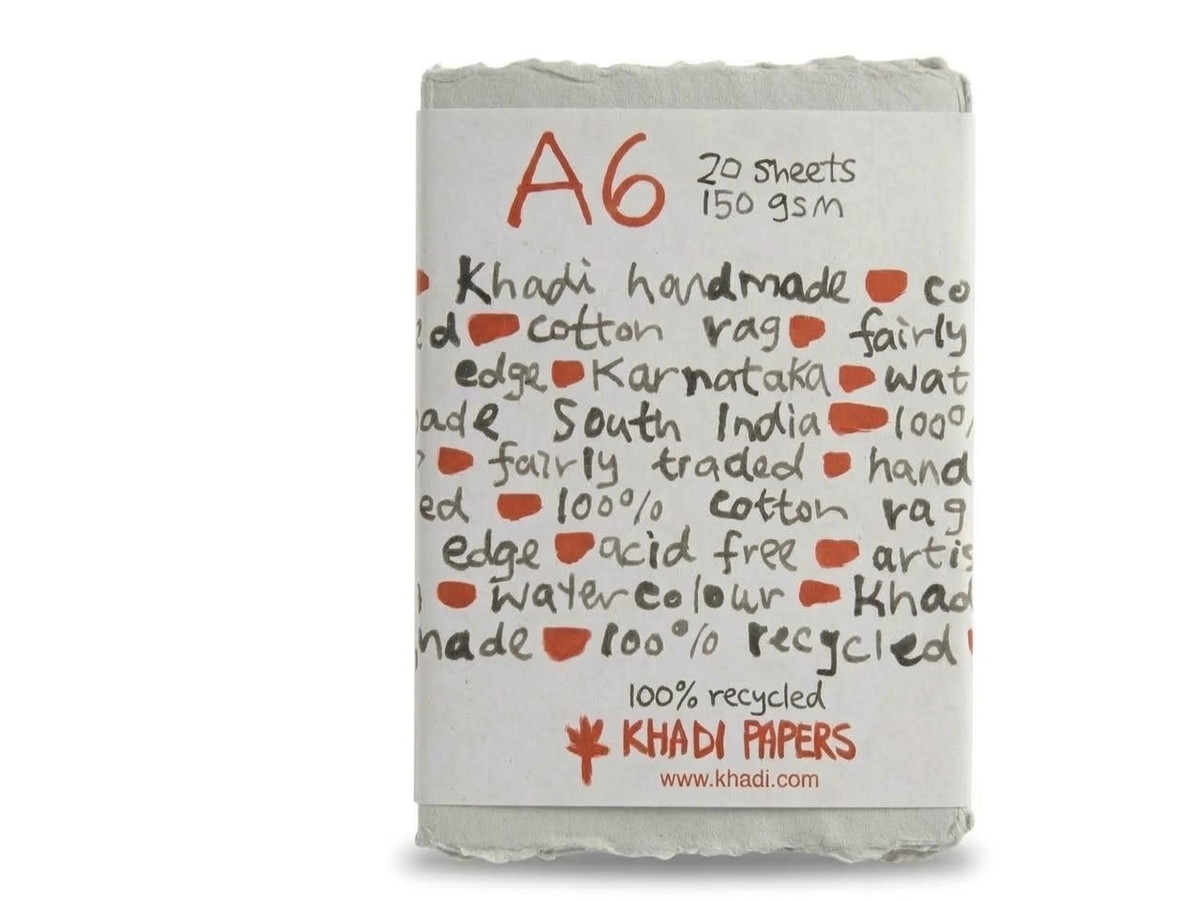 A6
20 sheets
150 gsm
Khadi handmade co
ed cotton rag fairly
edge Karnataka wat
ade South India 100%
fairly traded hand
ed 100% cotton rag
edge acid free artis
watercolour Khad
made 100% recycled
100% recycled
KHADI PAPERS
www.khadi.com